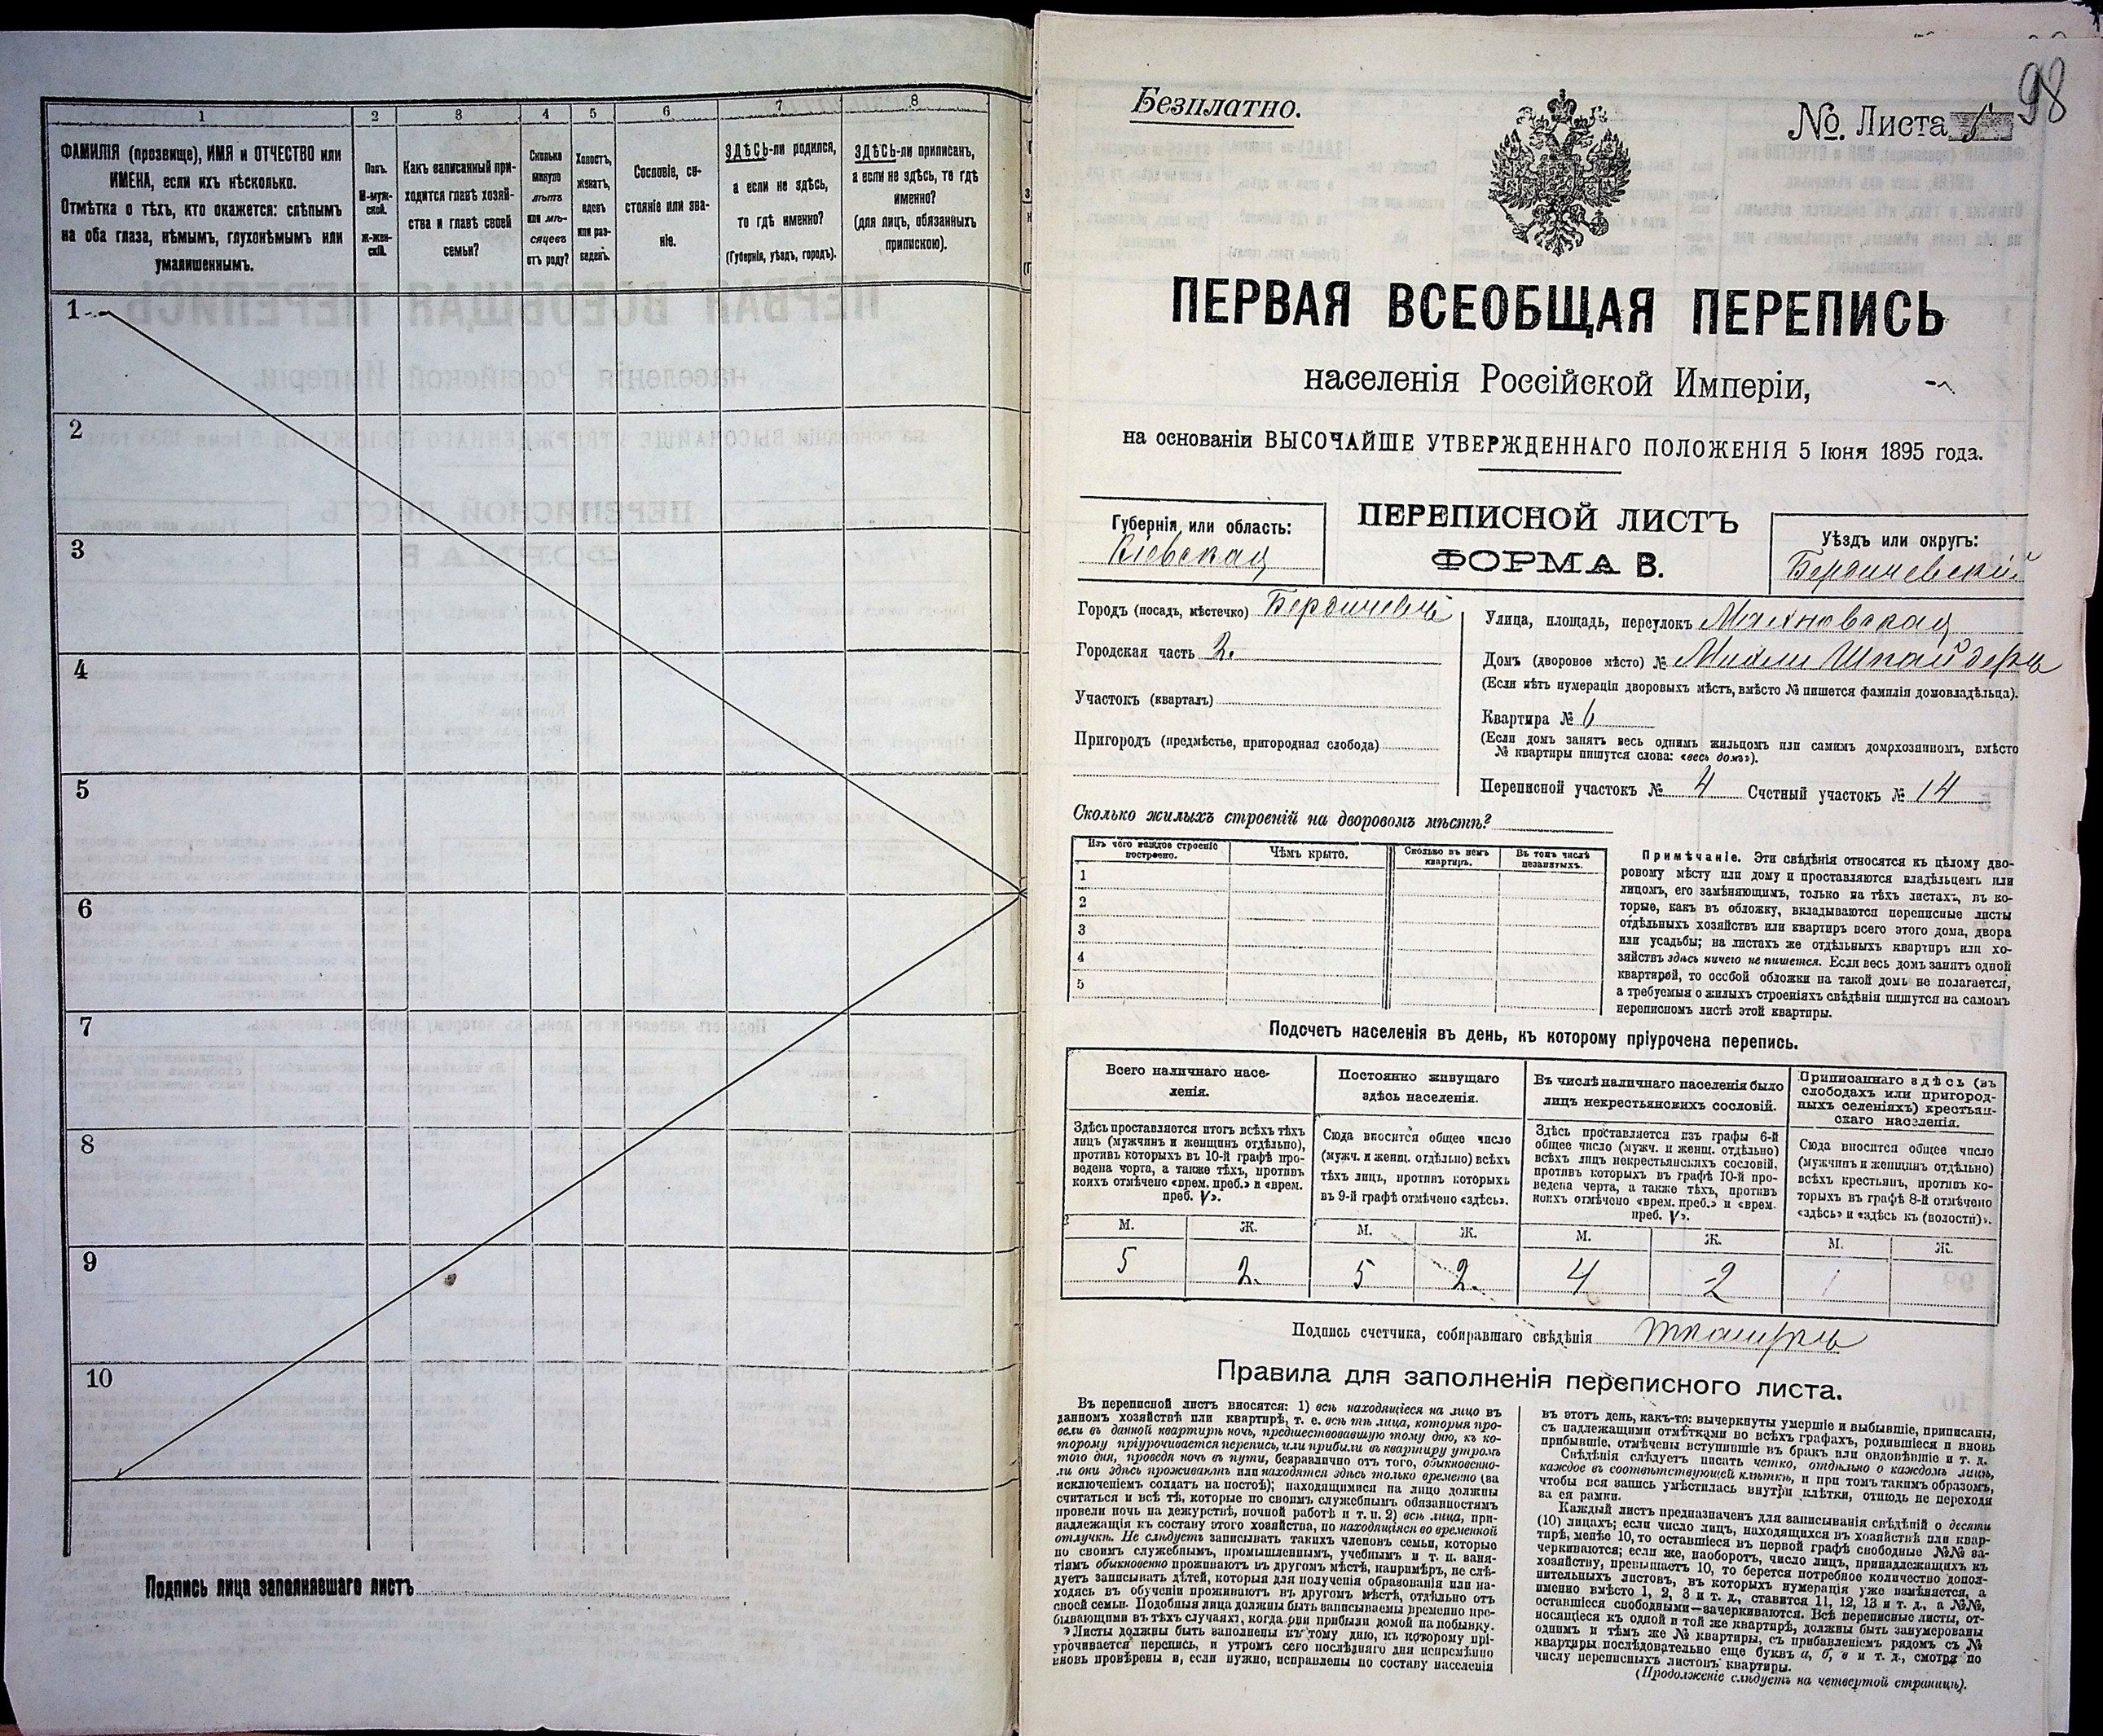 1
2
3
4
5
6
7
8
ФАМИЛІЯ (прозвище), ИМЯ и ОТЧЕСТВО или
ИМЕНА, если ихъ нѣсколько.
Отмѣтка о тѣхъ, кто окажется: слѣпымъ
на оба глаза, нѣмымъ, глухонѣмымъ или
умалишеннымъ.
Полъ.
М-муж-
ской.
Ж-жен-
скій.
Какъ записанный при-
ходится главѣ хозяй-
ства и главѣ своей
семьи?
Сколько
минуло
лѣтъ
или мѣ-
сяцевъ
отъ роду?
Холостъ,
женатъ,
вдовъ
или раз-
веденъ.
Сословіе, со-
стояніе или зва-
ніе.
ЗДѢСЬ-ли родился,
а если не здѣсь,
то гдѣ именно?
(Губернія, уѣздъ, городъ).
ЗДѢСЬ-ли приписанъ,
а если не здѣсь, то гдѣ
именно?
(для лицъ, обязанныхъ
припискою).
1
2
3
4
5
6
7
8
9
10
Подпись лица заполнявшаго листъ
98
Безплатно.
№. Листа
ПЕРВАЯ ВСЕОБЩАЯ ПЕРЕПИСЬ
населенія Россійской Имперіи,
на основаніи ВЫСОЧАЙШЕ УТВЕРЖДЕННАГО ПОЛОЖЕНІЯ 5 Іюня 1895 года.
Губернія или область:
Кіевская
ПЕРЕПИСНОЙ ЛИСТЪ
ФОРМА В.
Уѣздъ или округъ:
Бердичевскій
Городъ (посадъ, мѣстечко) Бердичевъ
Городская часть 2.
Участокъ (кварталъ)
Пригородъ (предмѣстье, пригородная слобода)
Улица, площадь, переулокъ Махновская
Домъ (дворовое мѣсто) №
(Если нѣтъ нумераціи дворовыхъ мѣстъ, вмѣсто № пишется фамилія домовладѣльца).
Квартира № 6
(Если домъ занятъ весь однимъ жильцомъ или самимъ домохозяиномъ, вмѣсто
№ квартиры пишутся слова: «весь домъ»).
Переписной участокъ № 4 Счетный участокъ № 14
Сколько жилыхъ строеній на дворовомъ мѣстѣ?
Изъ чего каждое строеніе
построено.
Чѣмъ крыто.
Сколько въ немъ
квартиръ.
Въ томъ числѣ
незанятыхъ.
1
2
3
4
5
Примѣчаніе. Эти свѣдѣнія относятся къ цѣлому дво-
ровому мѣсту или дому и проставляются владѣльцемъ или
лицомъ, его замѣняющимъ, только на тѣхъ листахъ, въ ко-
торые, какъ въ обложку, вкладываются переписные листы
отдѣльныхъ хозяйствъ или квартиръ всего этого дома, двора
или усадьбы; на листахъ же отдѣльныхъ квартиръ или хо-
зяйствъ здѣсь ничего не пишется. Если весь домъ занятъ одной
квартирой, то особой обложки на такой домъ не полагается,
а требуемыя о жилыхъ строеніяхъ свѣдѣнія пишутся на самомъ
переписномъ листѣ этой квартиры.
Подсчетъ населенія въ день, къ которому пріурочена перепись.
Всего наличнаго насе-
ленія.
Постоянно живущаго
здѣсь населенія.
Въ числѣ наличнаго населенія было
лицъ некрестьянскихъ сословій.
Приписаннаго здѣсь (въ
слободахъ или пригород-
ныхъ селеніяхъ) крестьян-
скаго населенія.
Здѣсь проставляется итогъ всѣхъ тѣхъ
лицъ (мужчинъ и женщинъ отдѣльно),
противъ которыхъ въ 10-й графѣ про-
ведена черта, а также тѣхъ, противъ
коихъ отмѣчено «врем. преб.» и «врем.
преб. V».
Сюда вносится общее число
(мужч. и женщ. отдѣльно) всѣхъ
тѣхъ лицъ, противъ которыхъ
въ 9-й графѣ отмѣчено «здѣсь».
Здѣсь проставляется изъ графы 6-й
общее число (мужч. и женщ. отдѣльно)
всѣхъ лицъ некрестьянскихъ сословій,
противъ которыхъ въ графѣ 10-й про-
ведена черта, а также тѣхъ, противъ
коихъ отмѣчено «врем. преб.» и «врем.
преб. V».
Сюда вносится общее число
(мужчинъ и женщинъ отдѣльно)
всѣхъ крестьянъ, противъ ко-
торыхъ въ графѣ 8-й отмѣчено
«здѣсь» и «здѣсь къ (волости)».
М. Ж. М. Ж. М. Ж. М. Ж.
5 2. 5 2. 4 2 1
Подпись счетчика, собиравшаго свѣдѣнія
Правила для заполненія переписного листа.
Въ переписной листъ вносятся: 1) всѣ находящіеся на лицо въ
данномъ хозяйствѣ или квартирѣ, т. е. всѣ тѣ лица, которыя про-
вели въ данной квартирѣ ночь, предшествовавшую тому дню, къ ко-
торому пріурочивается перепись, или прибыли въ квартиру утромъ
того дня, проведя ночь въ пути, безразлично отъ того, обыкновенно-
ли они здѣсь проживаютъ или находятся здѣсь только временно (за
исключеніемъ солдатъ на постоѣ); находящимися на лицо должны
считаться и всѣ тѣ, которые по своимъ служебнымъ обязанностямъ
провели ночь на дежурствѣ, ночной работѣ и т. п. 2) всѣ лица, при-
надлежащія къ составу этого хозяйства, но находящіяся во временной
отлучкѣ. Не слѣдуетъ записывать такихъ членовъ семьи, которые
по своимъ служебнымъ, промышленнымъ, учебнымъ и т. п. заня-
тіямъ обыкновенно проживаютъ въ другомъ мѣстѣ, напримѣръ, не слѣ-
дуетъ записывать дѣтей, которыя для полученія образованія или на-
ходясь въ обученіи проживаютъ въ другомъ мѣстѣ, отдѣльно отъ
своей семьи. Подобныя лица должны быть записываемы временно пре-
бывающими въ тѣхъ случаяхъ, когда они прибыли домой на побывку.
Листы должны быть заполнены къ тому дню, къ которому прі-
урочивается перепись, и утромъ сего послѣдняго дня непремѣнно
вновь провѣрены и, если нужно, исправлены по составу населенія
въ этотъ день, какъ-то: вычеркнуты умершіе и выбывшіе, приписаны,
съ надлежащими отмѣтками во всѣхъ графахъ, родившіеся и вновь
прибывшіе, отмѣчены вступившіе въ бракъ или овдовѣвшіе и т. д.
Свѣдѣнія слѣдуетъ писать четко, отдѣльно о каждомъ лицѣ,
каждое въ соотвѣтствующей клѣткѣ, и при томъ такимъ образомъ,
чтобы вся запись умѣстилась внутри клѣтки, отнюдь не переходя
за ея рамки.
Каждый листъ предназначенъ для записыванія свѣдѣній о десяти
(10) лицахъ; если число лицъ, находящихся въ хозяйствѣ или квар-
тирѣ, менѣе 10, то оставшіеся въ первой графѣ свободные №№ за-
черкиваются; если же, наоборотъ, число лицъ, принадлежащихъ къ
хозяйству, превышаетъ 10, то берется потребное количество допол-
нительныхъ листовъ, въ которыхъ нумерація уже измѣняется, а
именно вмѣсто 1, 2, 3 и т. д., ставится 11, 12, 13 и т. д., а №№,
оставшіеся свободными—зачеркиваются. Всѣ переписные листы, от-
носящіеся къ одной и той же квартирѣ, должны быть занумерованы
однимъ и тѣмъ же № квартиры, съ прибавленіемъ рядомъ съ №
квартиры послѣдовательно еще буквъ а, б, в и т. д., смотря по
числу переписныхъ листовъ квартиры.
(Продолженіе слѣдуетъ на четвертой страницѣ).